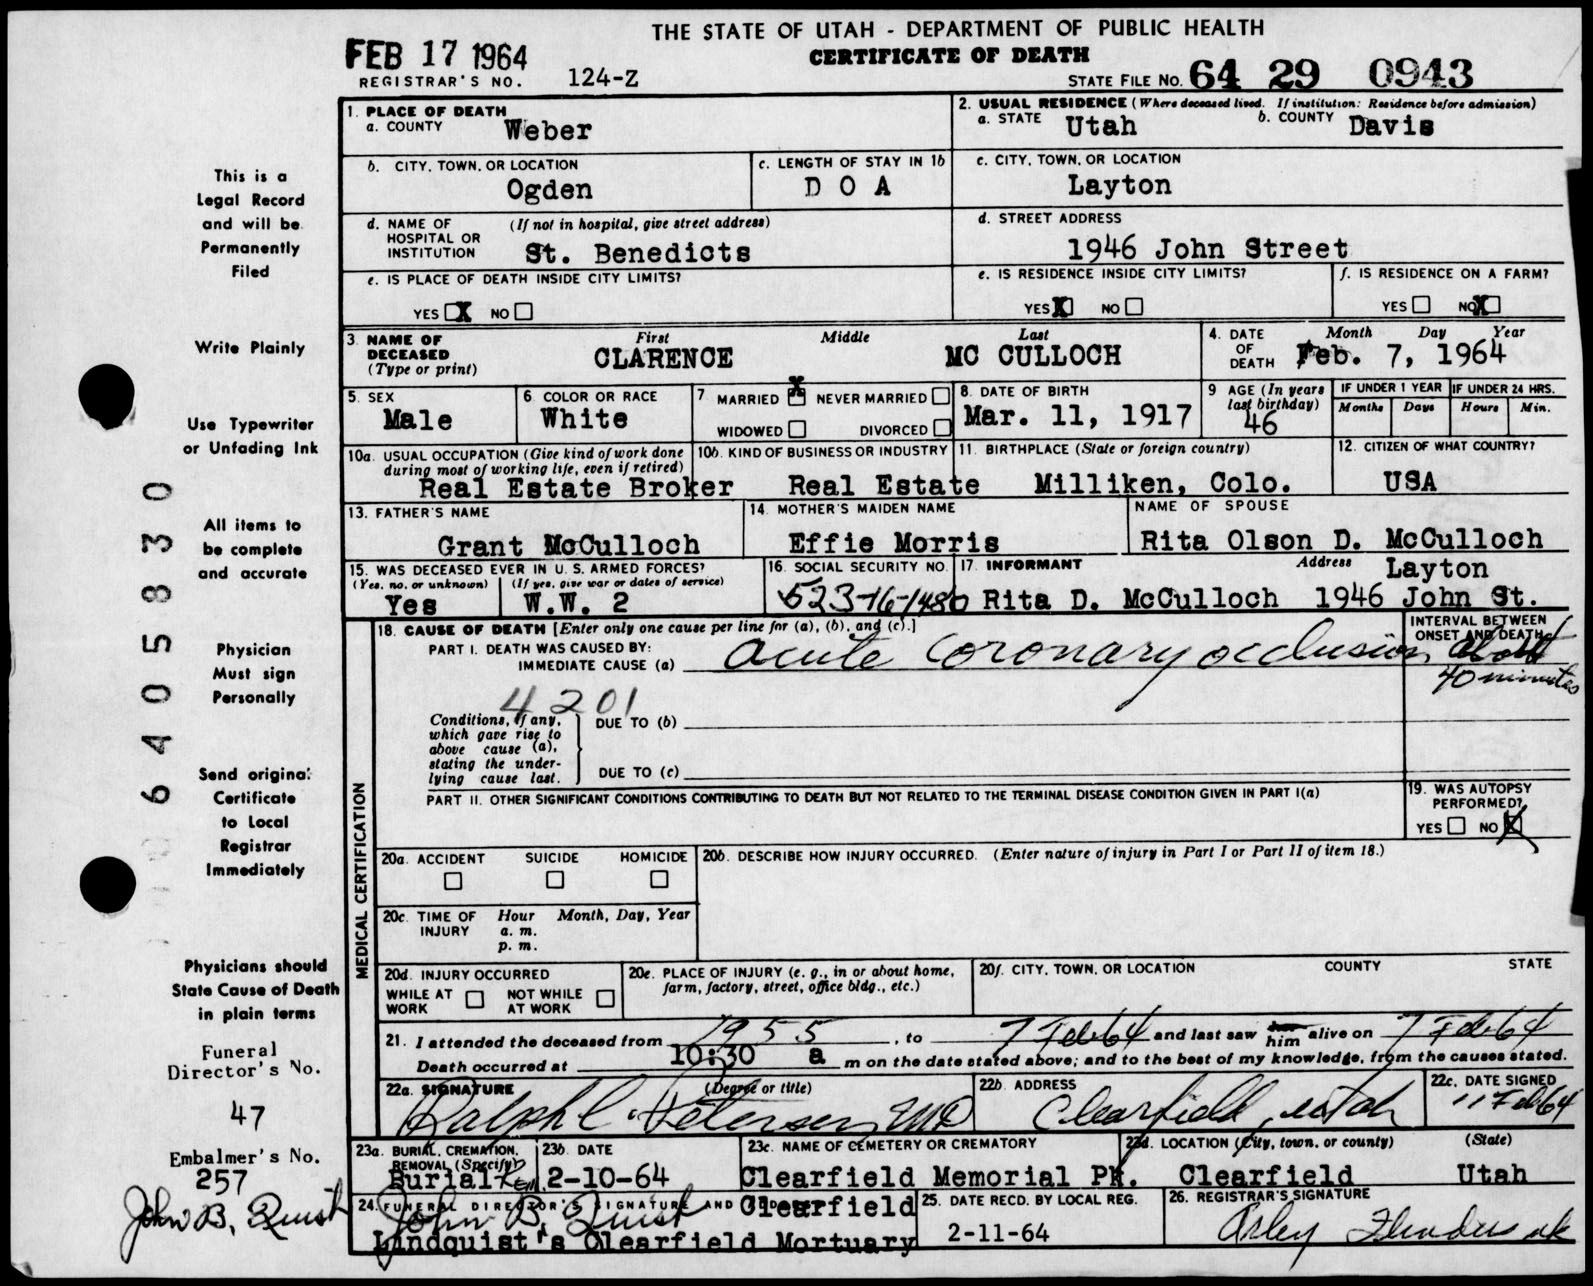 THE STATE OF UTAH - DEPARTMENT OF PUBLIC HEALTH
CERTIFICATE OF DEATH
FEB 17 1964
REGISTRAR'S NO. 124-Z
STATE FILE NO. 64 29 0943
1. PLACE OF DEATH
a. COUNTY Weber
2. USUAL RESIDENCE (Where deceased lived. If institution: Residence before admission)
a. STATE Utah b. COUNTY Davis
b. CITY, TOWN, OR LOCATION
Ogden
c. LENGTH OF STAY IN 1b
D O A
c. CITY, TOWN, OR LOCATION
Layton
d. NAME OF HOSPITAL OR INSTITUTION (If not in hospital, give street address)
St. Benedicts
d. STREET ADDRESS
1946 John Street
e. IS PLACE OF DEATH INSIDE CITY LIMITS?
YES X NO
e. IS RESIDENCE INSIDE CITY LIMITS?
YES X NO
f. IS RESIDENCE ON A FARM?
YES NO X
3. NAME OF DECEASED (Type or print)
First Middle Last
CLARENCE MC CULLOCH
4. DATE OF DEATH Month Day Year
Feb. 7, 1964
5. SEX
Male
6. COLOR OR RACE
White
7 MARRIED X NEVER MARRIED
WIDOWED DIVORCED
8. DATE OF BIRTH
Mar. 11, 1917
9 AGE (In years last birthday)
46
IF UNDER 1 YEAR IF UNDER 24 HRS.
Months Days Hours Min.
10a. USUAL OCCUPATION (Give kind of work done during most of working life, even if retired)
Real Estate Broker
10b. KIND OF BUSINESS OR INDUSTRY
Real Estate
11. BIRTHPLACE (State or foreign country)
Milliken, Colo.
12. CITIZEN OF WHAT COUNTRY?
USA
13. FATHER'S NAME
Grant McCulloch
14. MOTHER'S MAIDEN NAME
Effie Morris
NAME OF SPOUSE
Rita Olson D. McCulloch
15. WAS DECEASED EVER IN U.S. ARMED FORCES?
(Yes, no, or unknown) (If yes, give war or dates of service)
Yes W.W. 2
16. SOCIAL SECURITY NO.
523-16-1480
17. INFORMANT Address Layton
Rita D. McCulloch 1946 John St.
18. CAUSE OF DEATH [Enter only one cause per line for (a), (b), and (c).]
PART I. DEATH WAS CAUSED BY:
IMMEDIATE CAUSE (a) acute coronary occlusion
INTERVAL BETWEEN ONSET AND DEATH
about
40 minutes
4201
Conditions, if any, which gave rise to above cause (a), stating the underlying cause last.
DUE TO (b)
DUE TO (c)
PART II. OTHER SIGNIFICANT CONDITIONS CONTRIBUTING TO DEATH BUT NOT RELATED TO THE TERMINAL DISEASE CONDITION GIVEN IN PART I(a)
19. WAS AUTOPSY PERFORMED?
YES NO X
20a. ACCIDENT SUICIDE HOMICIDE
20b. DESCRIBE HOW INJURY OCCURRED. (Enter nature of injury in Part I or Part II of item 18.)
20c. TIME OF INJURY Hour Month, Day, Year
a. m.
p. m.
20d. INJURY OCCURRED
WHILE AT WORK NOT WHILE AT WORK
20e. PLACE OF INJURY (e. g., in or about home, farm, factory, street, office bldg., etc.)
20f. CITY, TOWN, OR LOCATION COUNTY STATE
21. I attended the deceased from 1955, to 7 Feb 64 and last saw her him alive on 7 Feb 64
Death occurred at 10:30 a m on the date stated above; and to the best of my knowledge, from the causes stated.
22a. SIGNATURE (Degree or title)
Ralph C. Petersen, MD
22b. ADDRESS
Clearfield, Utah
22c. DATE SIGNED
11 Feb 64
23a. BURIAL, CREMATION, REMOVAL (Specify)
Burial
23b. DATE
2-10-64
23c. NAME OF CEMETERY OR CREMATORY
Clearfield Memorial Pk.
23d. LOCATION (City, town, or county) (State)
Clearfield Utah
24. FUNERAL DIRECTOR'S SIGNATURE AND
John B. Quist Clearfield
Lindquist's Clearfield Mortuary
25. DATE RECD. BY LOCAL REG.
2-11-64
26. REGISTRAR'S SIGNATURE
MEDICAL CERTIFICATION
This is a
Legal Record
and will be
Permanently
Filed
Write Plainly
Use Typewriter
or Unfading Ink
All items to
be complete
and accurate
Physician
Must sign
Personally
Send original
Certificate
to Local
Registrar
Immediately
Physicians should
State Cause of Death
in plain terms
Funeral
Director's No.
47
Embalmer's No.
257
John B. Quist
6405830